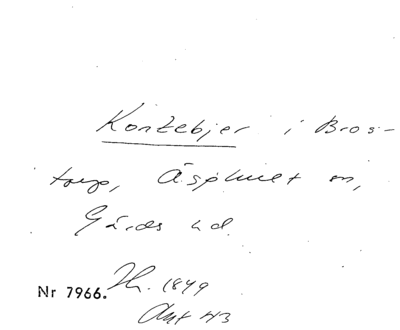 Kontebjer i Bros-
torp, Äsphult sn,
Gärds hd.
Nr 7966. Th. 1849
Akt 43